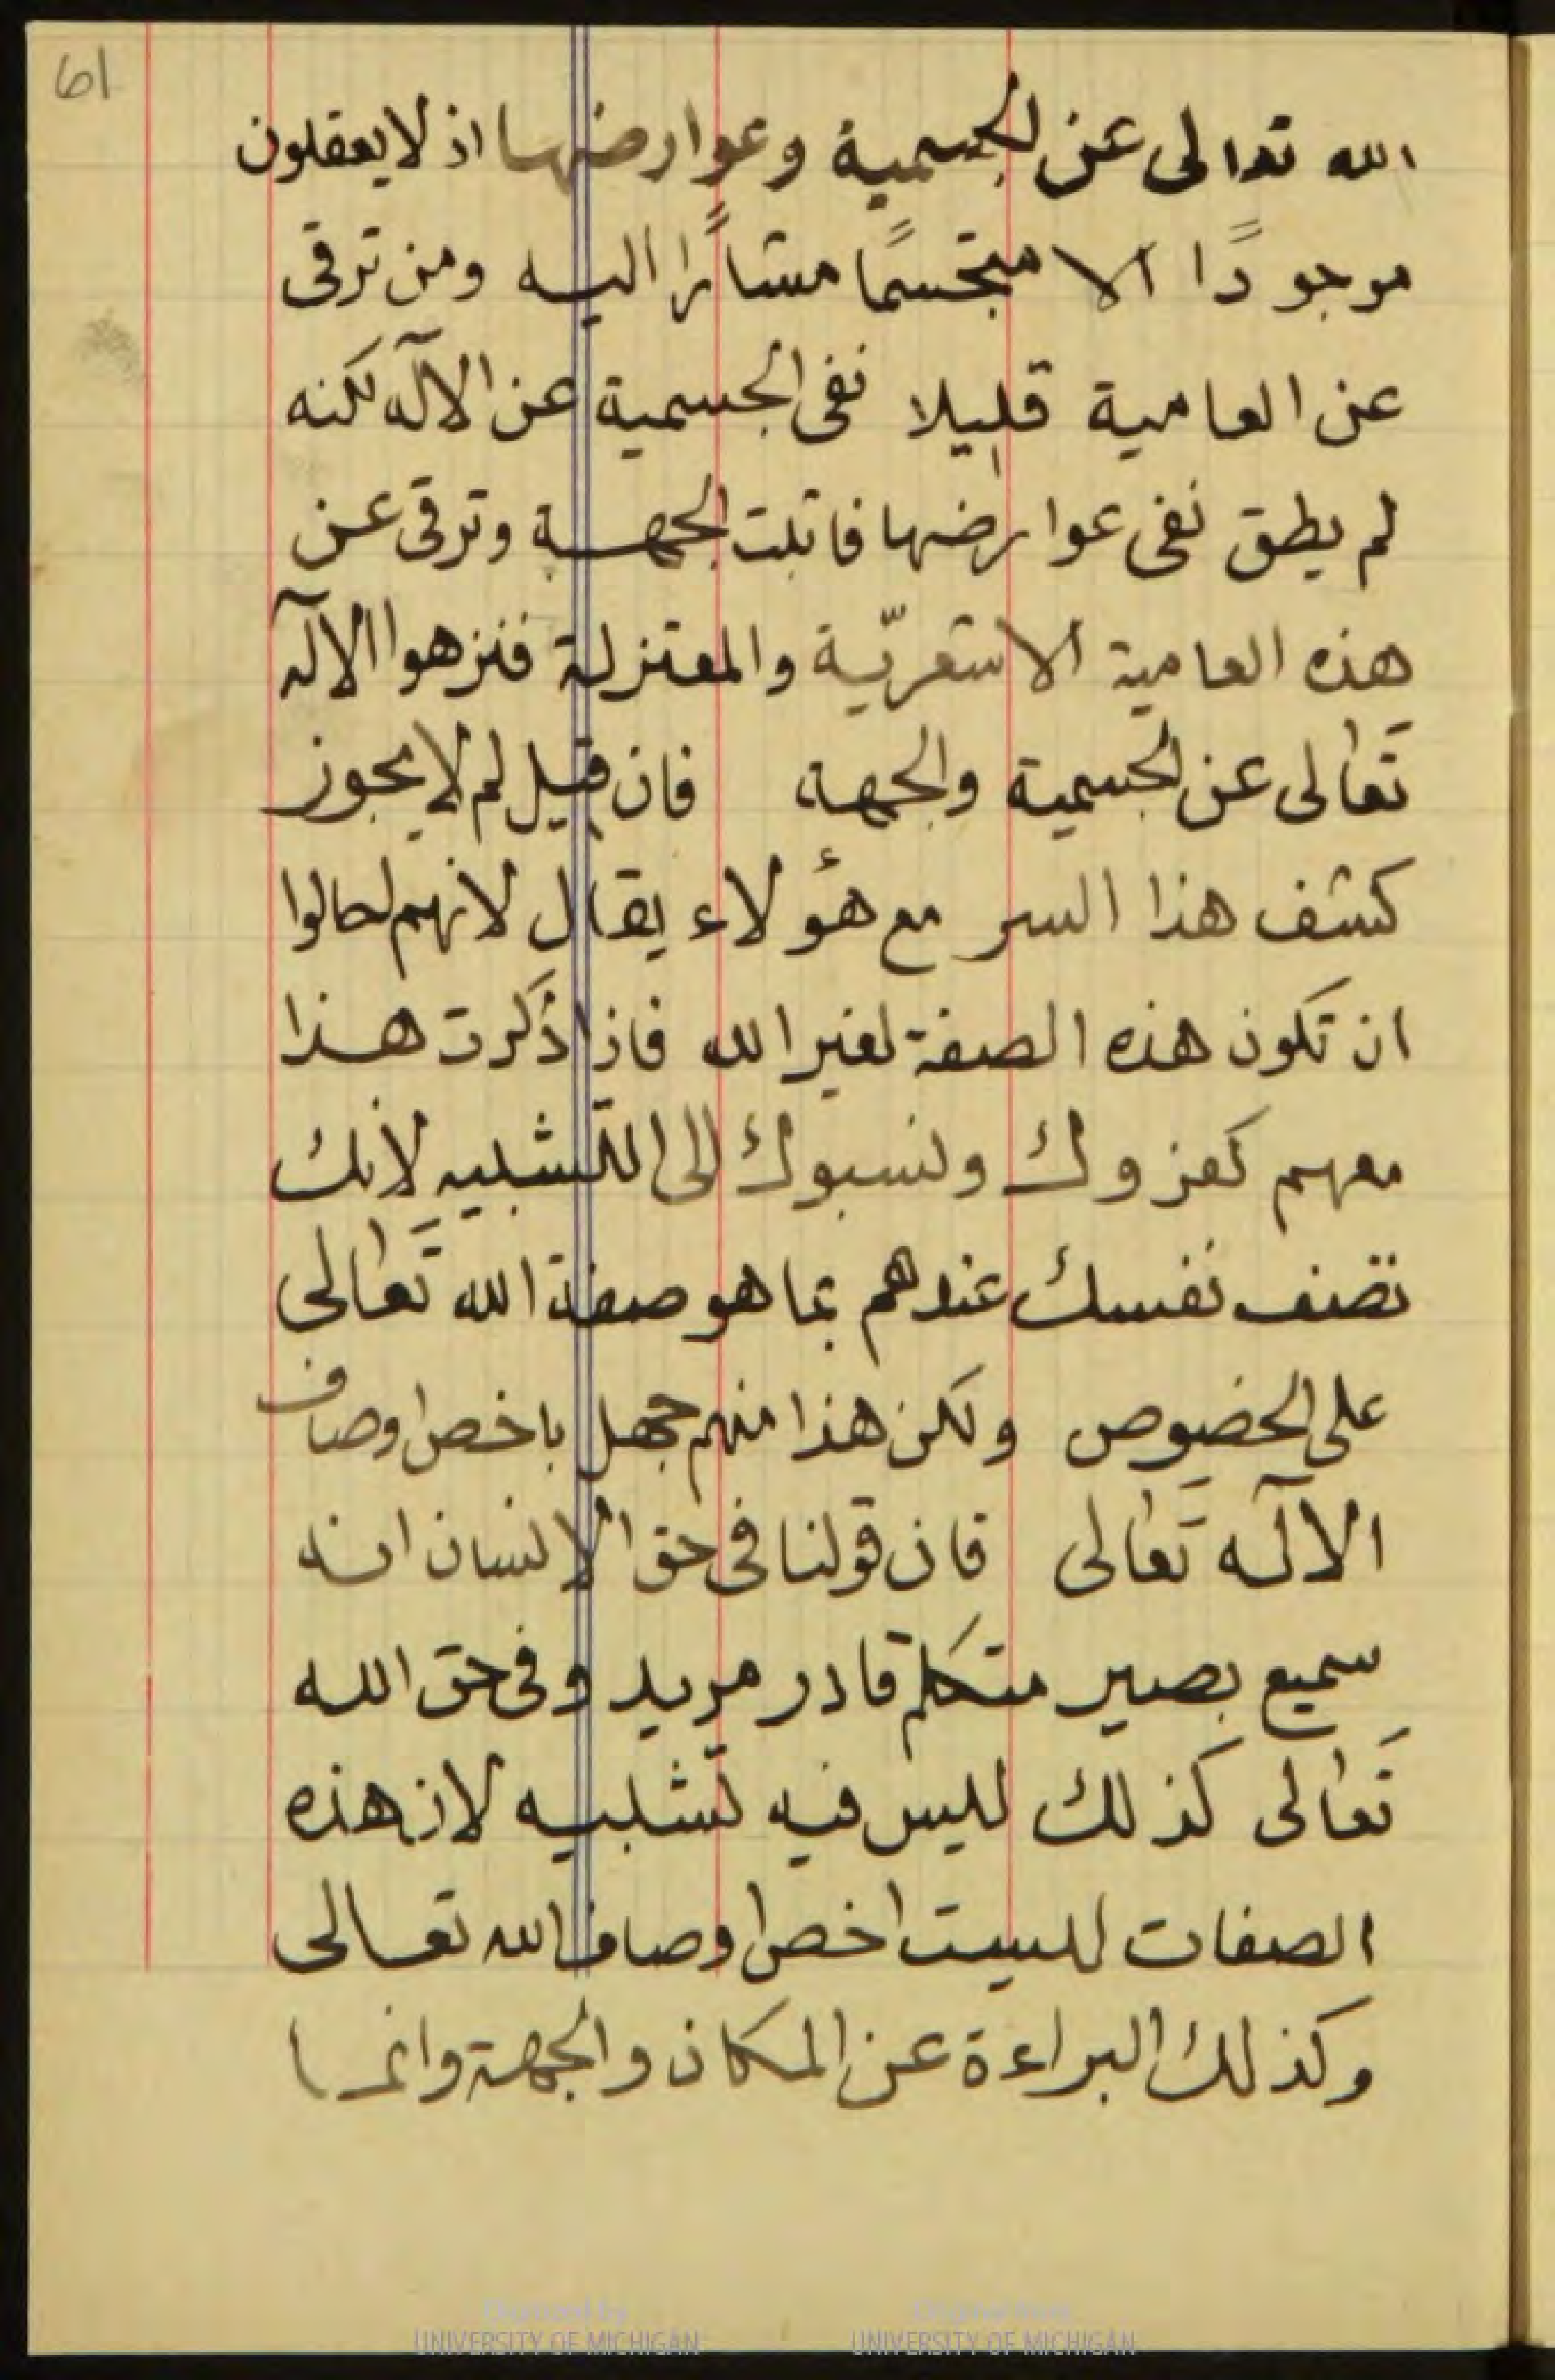 61
الله تعالى عن الجسمية وعوارضها اذ لا يعقلون
موجودًا الا متجسمًا مشارًا اليه ومن ترقى
عن العامية قليلا نفى الجسمية عن الآله لكنه
لم يطق نفى عوارضها فاثبت الجهة وترقى عن
هذه العامية الاشعريّة والمعتزلة فنزهوا الآله
تعالى عن الجسمية والجهة فان قيل لم لا يجوز
كشف هذا السر مع هؤلاء يقال لانهم احالوا
ان تكون هذه الصفة لغير الله فاذا ذكرت هذا
معهم كفروك ونسبوك الى التشبيه لأنك
تصف نفسك عندهم بما هو صفة الله تعالى
على الخصوص ولكن هذا منهم جهل باخص اوصاف
الآله تعالى فان قولنا فى حق الإنسان انه
سميع بصير متكلم قادر مريد وفى حق الله
تعالى كذلك ليس فيه تشبيه لان هذه
الصفات ليست اخص اوصاف الله تعالى
وكذلك البراءة عن المكان والجهة وانما
Digitized by
UNIVERSITY OF MICHIGAN
Original from
UNIVERSITY OF MICHIGAN